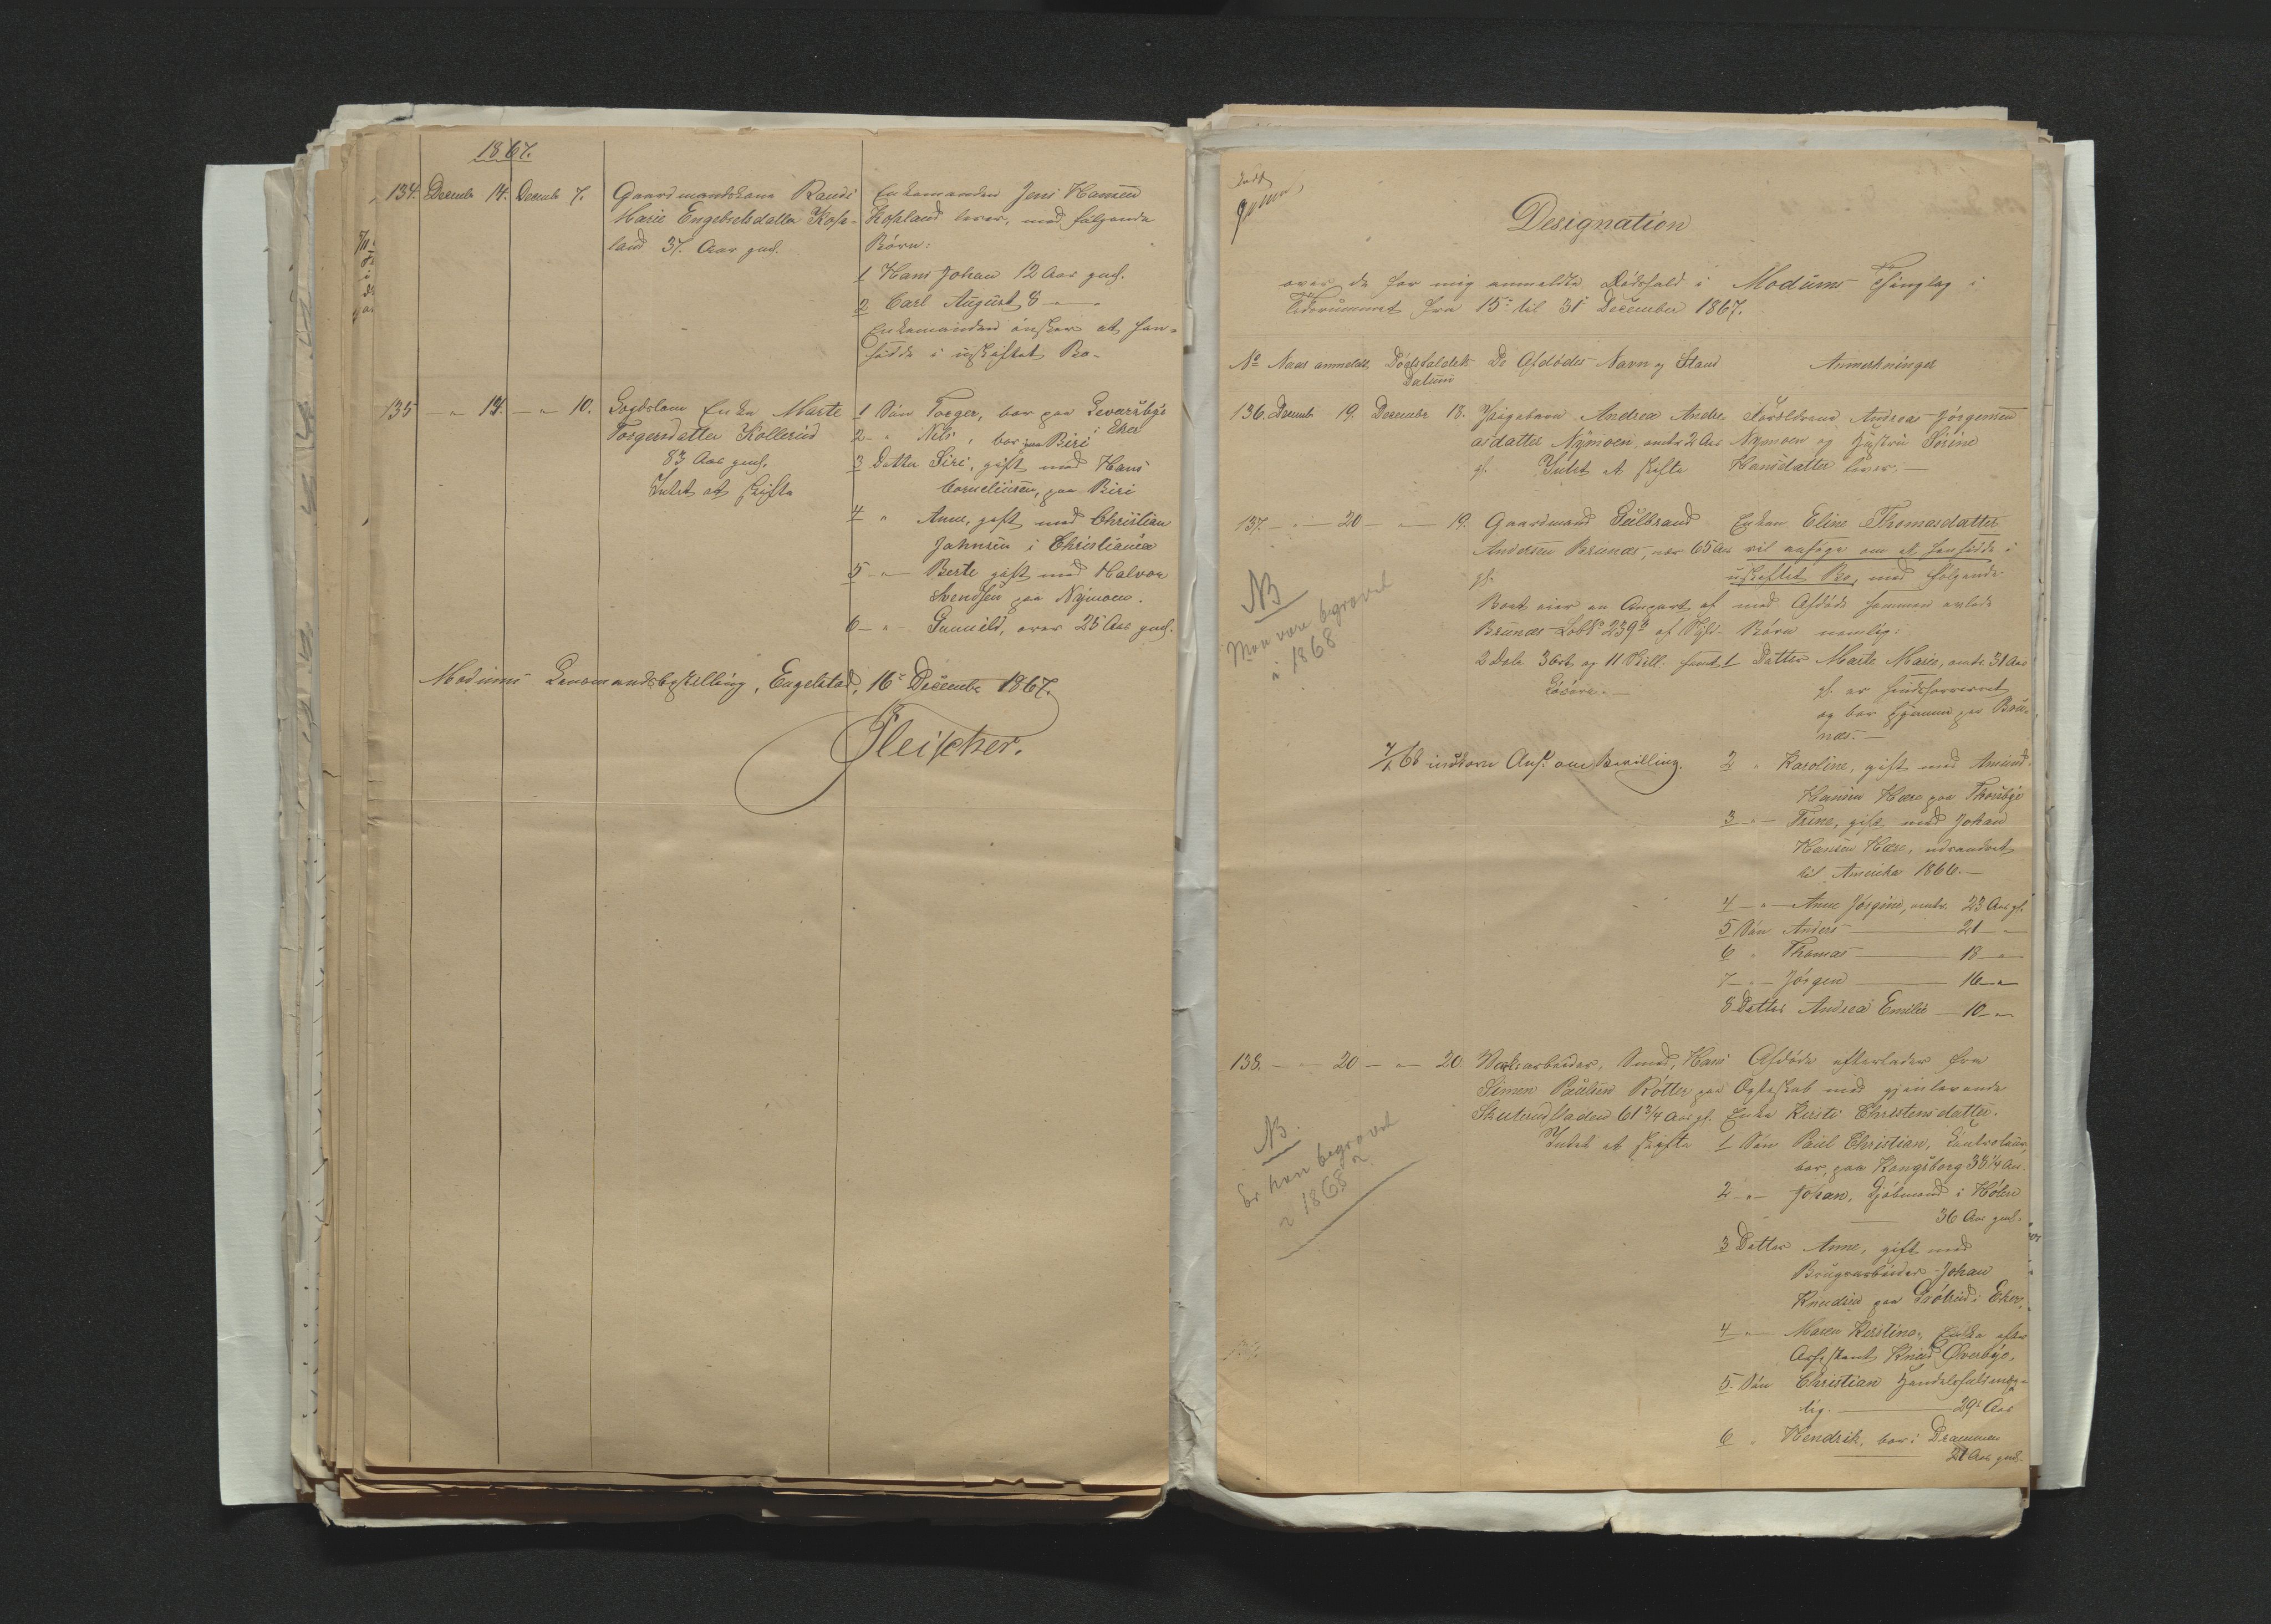 1867.
134. Decembr 14. Decembr 7. Gaardmandskone Randi
Marie Engebretsdatter Kops-
land 37 Aar gml.
Enkemanden Jens Hansen
Kopsland lever, med følgende
Børn:
1 Hans Johan 12 Aar gml.
2 Carl August 8 — "
Enkemanden ønsker at hen-
sidde i uskiftet Bo.
135 — " 14. — " 10. Enke Marte
Torgersdatter Kollerud
83 Aar gml.
Intet at skifte
1 Søn Torger, bor paa
i Eker
2 - " Nils, bor paa Biri
3 Datter Siri, gift med Hans
Corneliusen, paa Biri
4 " Anne, gift med Christian
Johnsen i Christiania
5 - " Berte gift med Halvor
Svendsen paa Nymoen.
6 - " Gunild, over 25 Aar gml.
Modums Lensmandsbestilling, Engelstad, 16de Decembr 1867.
Fleischer.
Designation
over de for mig anmeldte Dødsfald i Modums Thinglag i
Tidsrummet fra 15de til 31te December 1867.
No Naar anmeldt, Dødsfaldets Datum De Afdødes Navn og Stand Anmerkninger
136. Decembr 19. Decembr 18. Pigebarn Andrea Andre-
asdatter Nymoen, omtr 2 Aar
gl. Intet at skifte
Forældrene Andreas Jørgensen
Nymoen og Hustru Sørine
Hansdatter lever. —
137. — " — 20 — " — 19. Gaardmand Gulbrand
Andersen Brunæs, var 65 Aar
gl.
Boet eier en Anpart af
Brunæs Løb No 239 a af Skyld
2 Dale 3 ort og 11 Skill. samt
Løsøre. —
Enken Eline Thomasdatter
vil ansøge om at hensidde i
uskiftet Bo, med følgende
med Afdøde sammen avlede
Børn nemlig:
1 Datter Marte Marie, omtr. 31 Aar
gl. er sindsforvirret
og bor hjemme paa Bru-
næs. —
2 " Karoline, gift med Amund
Hansen Hære paa Thorsbye
3 - " - Trine, gift med Johan
Hansen Hære, udvandret
til Amerika 1866. —
4 - " - Anne Jørgine, omtr. 23 Aar gl.
5 Søn Anders — 21 — "
6 " Thomas — 18 — "
7 - " - Jørgen — 16 — "
8 Datter Andrea Emilie — 10 — "
NB
Maa være begravet
i 1868
7/1 68 indkom Ans. om Bevilling.
138. — " — 20 — " — 20. Værksarbeider, Smed, Hans
Simen Paulsen Rotter paa
Skuterudbaden 61 3/4 Aar gl.
Intet at skifte
Afdøde efterlader fra
Egteskab med gjenlevende
Enke Kirsti Christensdatter.
1 Søn Paul Christian,
bor paa Kongsberg 38 1/4 Aar.
2 - " - Johan, Kjøbmand i Hølen
36 Aar gml.
3 Datter Anne, gift med
Brugsarbeider Johan
Knudsen paa i Eker,
4 - " Maren Kirstine, Enke efter
Assistent Knud Øverbye,
5. Søn Christian
29 Aar
6 " Hendrik, bor i Drammen
21 Aar gml.
NB.
Er han begravet
i 1868?